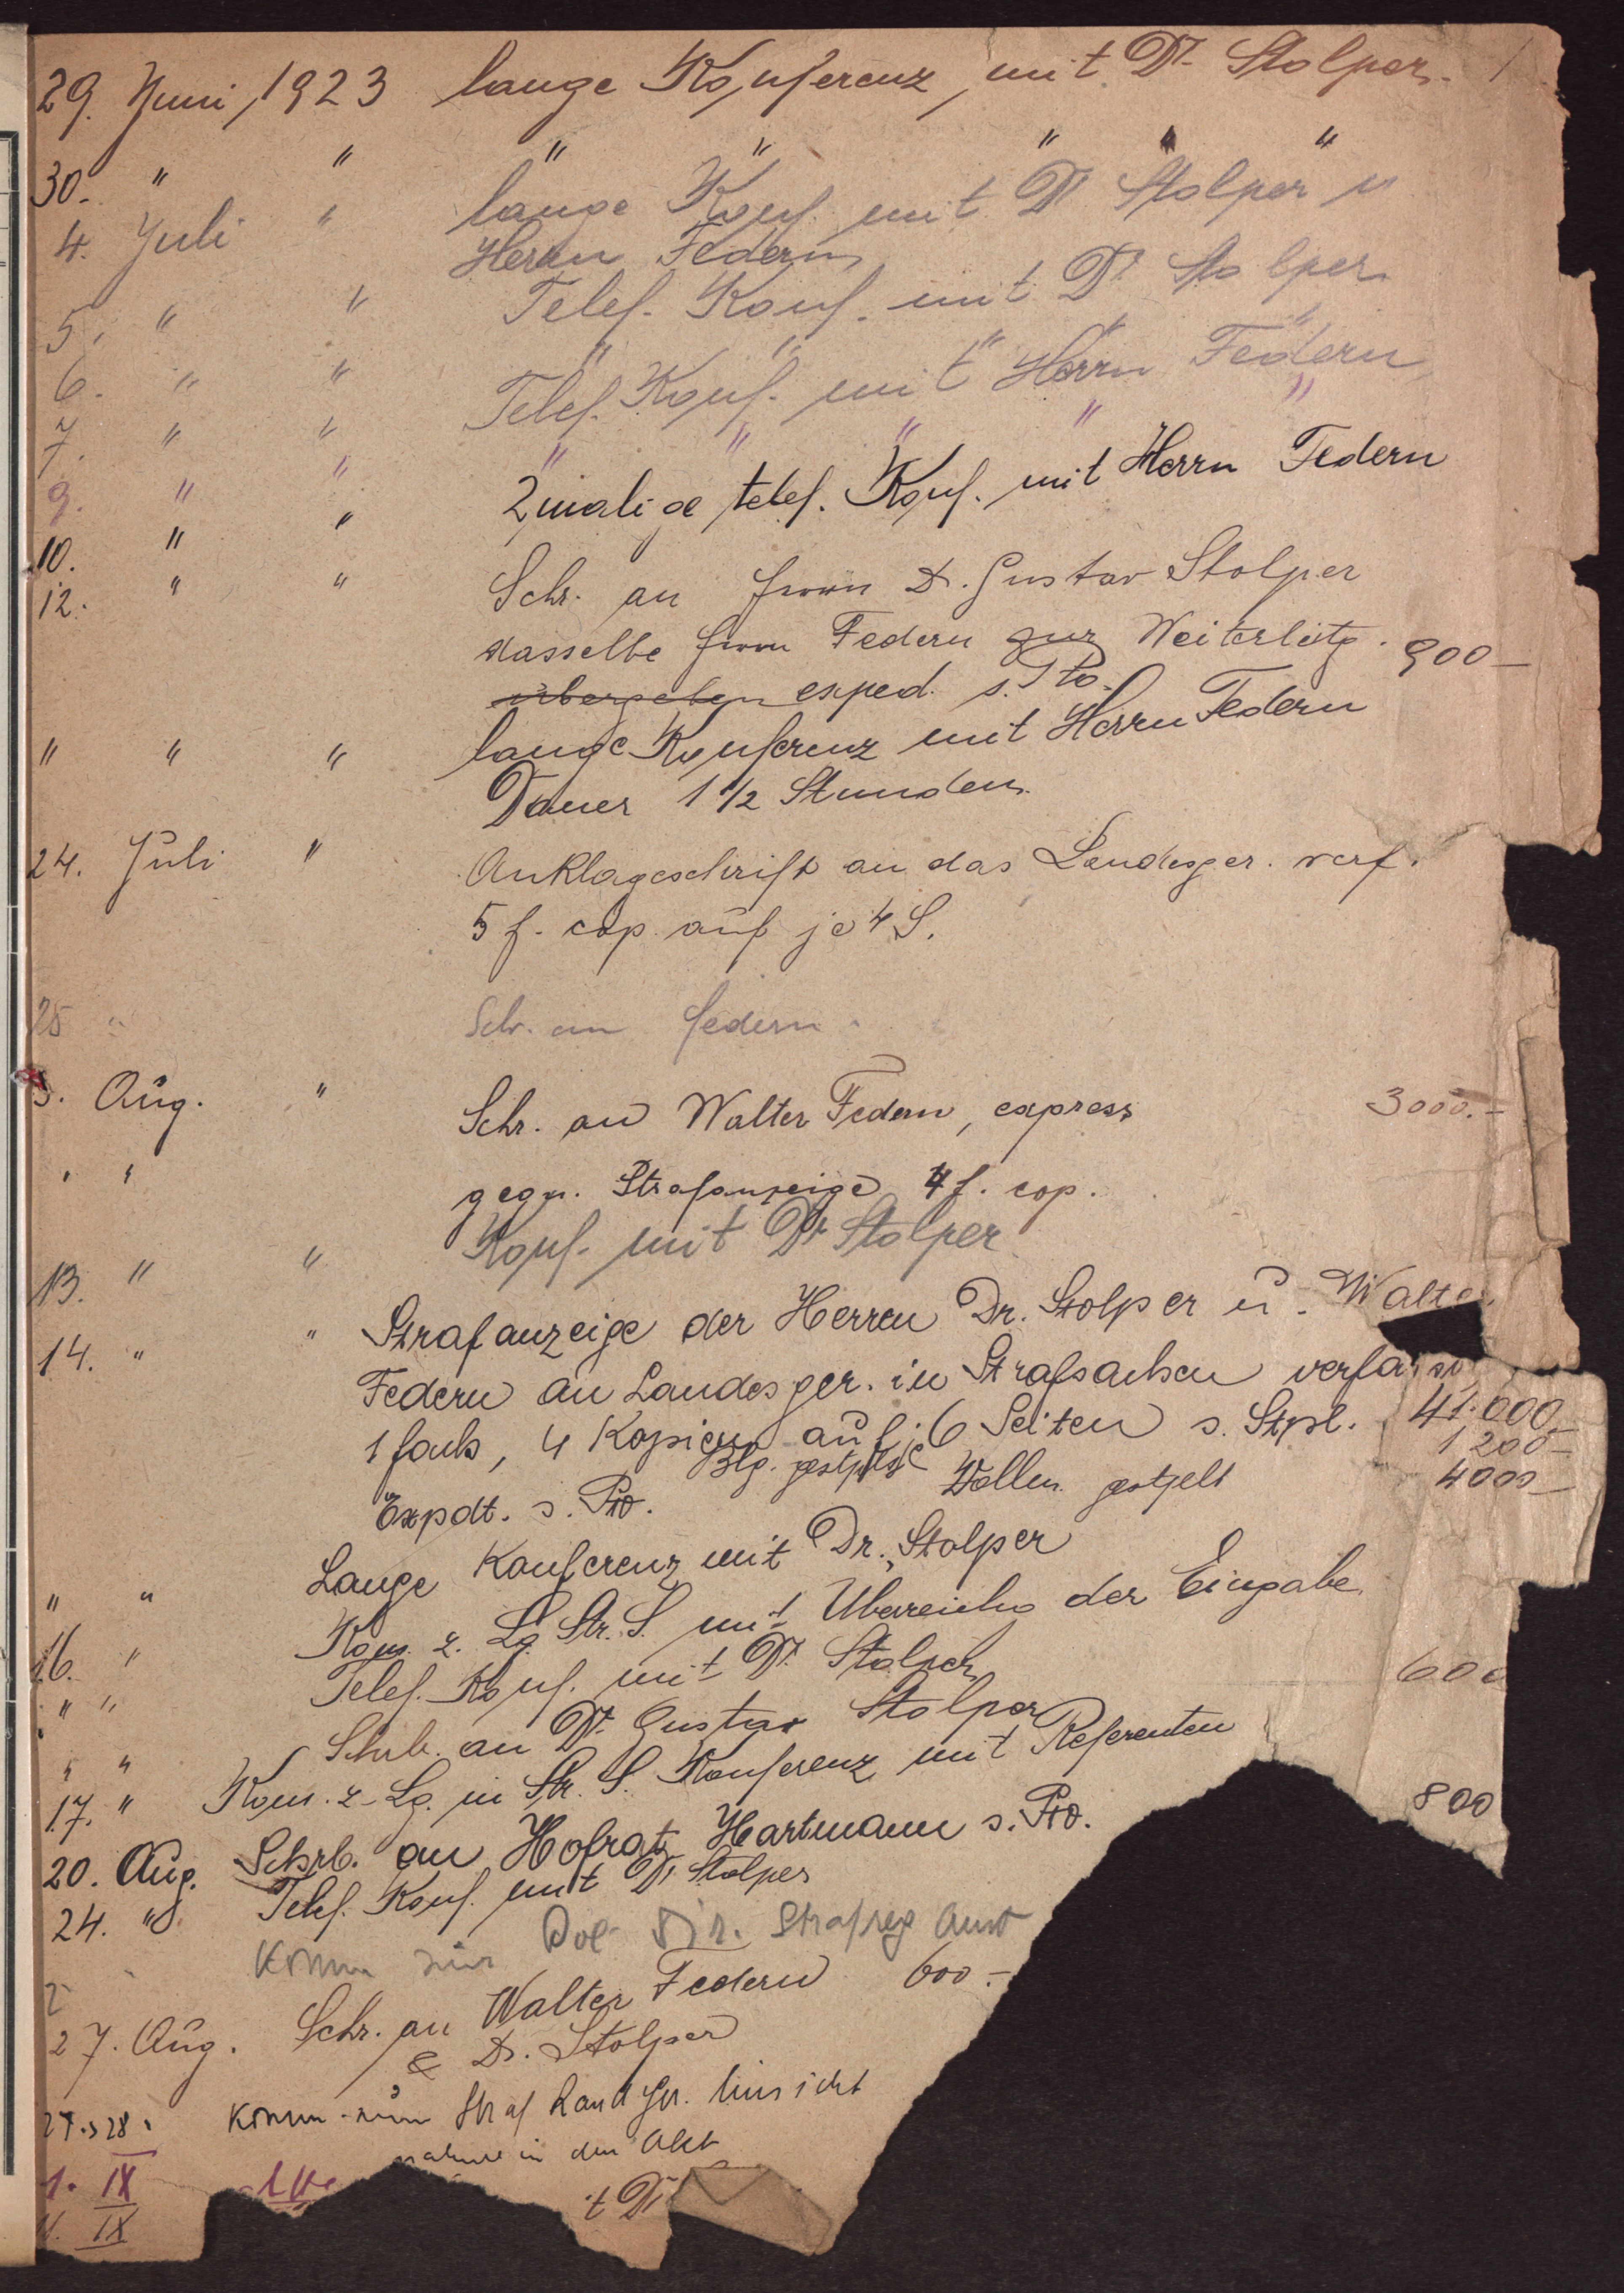 29. Juni, 1923 lange Konferenz mit Dr Stolper.
30. " " " " " " "
4. Juli " lange Konf. mit Dr Stolper u
Herrn Federn
5. " " Telef. Konf. mit Dr Stolper
6. " " " " " " "
7. " " Telef. Konf. mit Herrn Federn
9. " " " " " " "
10. " " 2malige telef. Konf. mit Herrn Federn
12. " " Schr. an Herrn Dr. Gustav Stolper
dasselbe Herrn Federn zur Weiterleitg. 900 –
übergeben exped. s. Pto.
" " " lange Konferenz mit Herrn Federn
Dauer 1 1/2 Stunden
24. Juli " Anklageschrift an das Landesger. verf.
5 f. cop. auf je 4 S.
25 " Schr. an Federn.
3. Aug. " Schr. an Walter Federn, express 3000.–
" " gegn. Strafanzeige 4 f. cop.
13. " " Konf. mit Dr Stolper
14. " " Strafanzeige der Herren Dr. Stolper u. Walter
Federn an Landesger. in Strafsachen verfasst
1 fach, 4 Kopien auf je 6 Seiten s. Stpl. 41.000
Blg. gestplt 1200 –
Expdt. s. Pto. Vollm. gestpelt 4000 –
" " Lange Konferenz mit Dr. Stolper
16. " Kom. z. Lg. Str. S. mit Überreichg der Eingabe
" " Telef. Konf. mit Dr. Stolper
" " Schrb. an Dr. Gustav Stolper 600
17. " Kom. z. Lg. in Str. S. Konferenz mit Referenten
20. Aug. Schrb. an Hofrat Hartmann s. Pto. 800
24. " Telef. Konf. mit Dr Stolper
Komm zur Pol. Dir. Strafreg Amt
27. Aug. Schr. an Walter Federn 600.–
& Dr. Stolper
27. 28. Komm. zum Straf Land Ger. Einsicht
nahme in den Akt
1. IX
IX